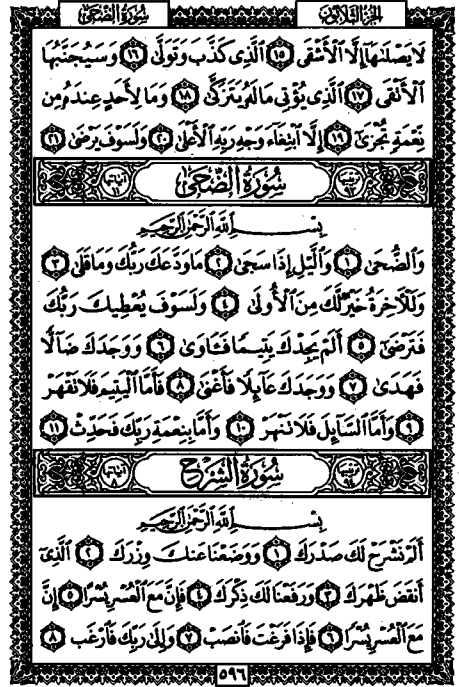 سُورَةُ الضُّحَىٰ الجُزْءُ الثَّلَاثُونَ
لَا يَصْلَىٰهَآ إِلَّا ٱلْأَشْقَى ١٥ ٱلَّذِى كَذَّبَ وَتَوَلَّىٰ ١٦ وَسَيُجَنَّبُهَا
ٱلْأَتْقَى ١٧ ٱلَّذِى يُؤْتِى مَالَهُۥ يَتَزَكَّىٰ ١٨ وَمَا لِأَحَدٍ عِندَهُۥ مِن
نِّعْمَةٍ تُجْزَىٰٓ ١٩ إِلَّا ٱبْتِغَآءَ وَجْهِ رَبِّهِ ٱلْأَعْلَىٰ ٢٠ وَلَسَوْفَ يَرْضَىٰ ٢١
سُورَةُ الضُّحَىٰ
بِسْمِ ٱللَّهِ ٱلرَّحْمَٰنِ ٱلرَّحِيمِ
وَٱلضُّحَىٰ ١ وَٱلَّيْلِ إِذَا سَجَىٰ ٢ مَا وَدَّعَكَ رَبُّكَ وَمَا قَلَىٰ ٣
وَلَلْأَخِرَةُ خَيْرٌ لَّكَ مِنَ ٱلْأُولَىٰ ٤ وَلَسَوْفَ يُعْطِيكَ رَبُّكَ
فَتَرْضَىٰٓ ٥ أَلَمْ يَجِدْكَ يَتِيمًا فَـَٔاوَىٰ ٦ وَوَجَدَكَ ضَآلًّا
فَهَدَىٰ ٧ وَوَجَدَكَ عَآئِلًا فَأَغْنَىٰ ٨ فَأَمَّا ٱلْيَتِيمَ فَلَا تَقْهَرْ
٩ وَأَمَّا ٱلسَّآئِلَ فَلَا تَنْهَرْ ١٠ وَأَمَّا بِنِعْمَةِ رَبِّكَ فَحَدِّثْ ١١
سُورَةُ الشَّرْحِ
بِسْمِ ٱللَّهِ ٱلرَّحْمَٰنِ ٱلرَّحِيمِ
أَلَمْ نَشْرَحْ لَكَ صَدْرَكَ ١ وَوَضَعْنَا عَنكَ وِزْرَكَ ٢ ٱلَّذِىٓ
أَنقَضَ ظَهْرَكَ ٣ وَرَفَعْنَا لَكَ ذِكْرَكَ ٤ فَإِنَّ مَعَ ٱلْعُسْرِ يُسْرًا ٥ إِنَّ
مَعَ ٱلْعُسْرِ يُسْرًا ٦ فَإِذَا فَرَغْتَ فَٱنصَبْ ٧ وَإِلَىٰ رَبِّكَ فَٱرْغَب ٨
٥٩٦